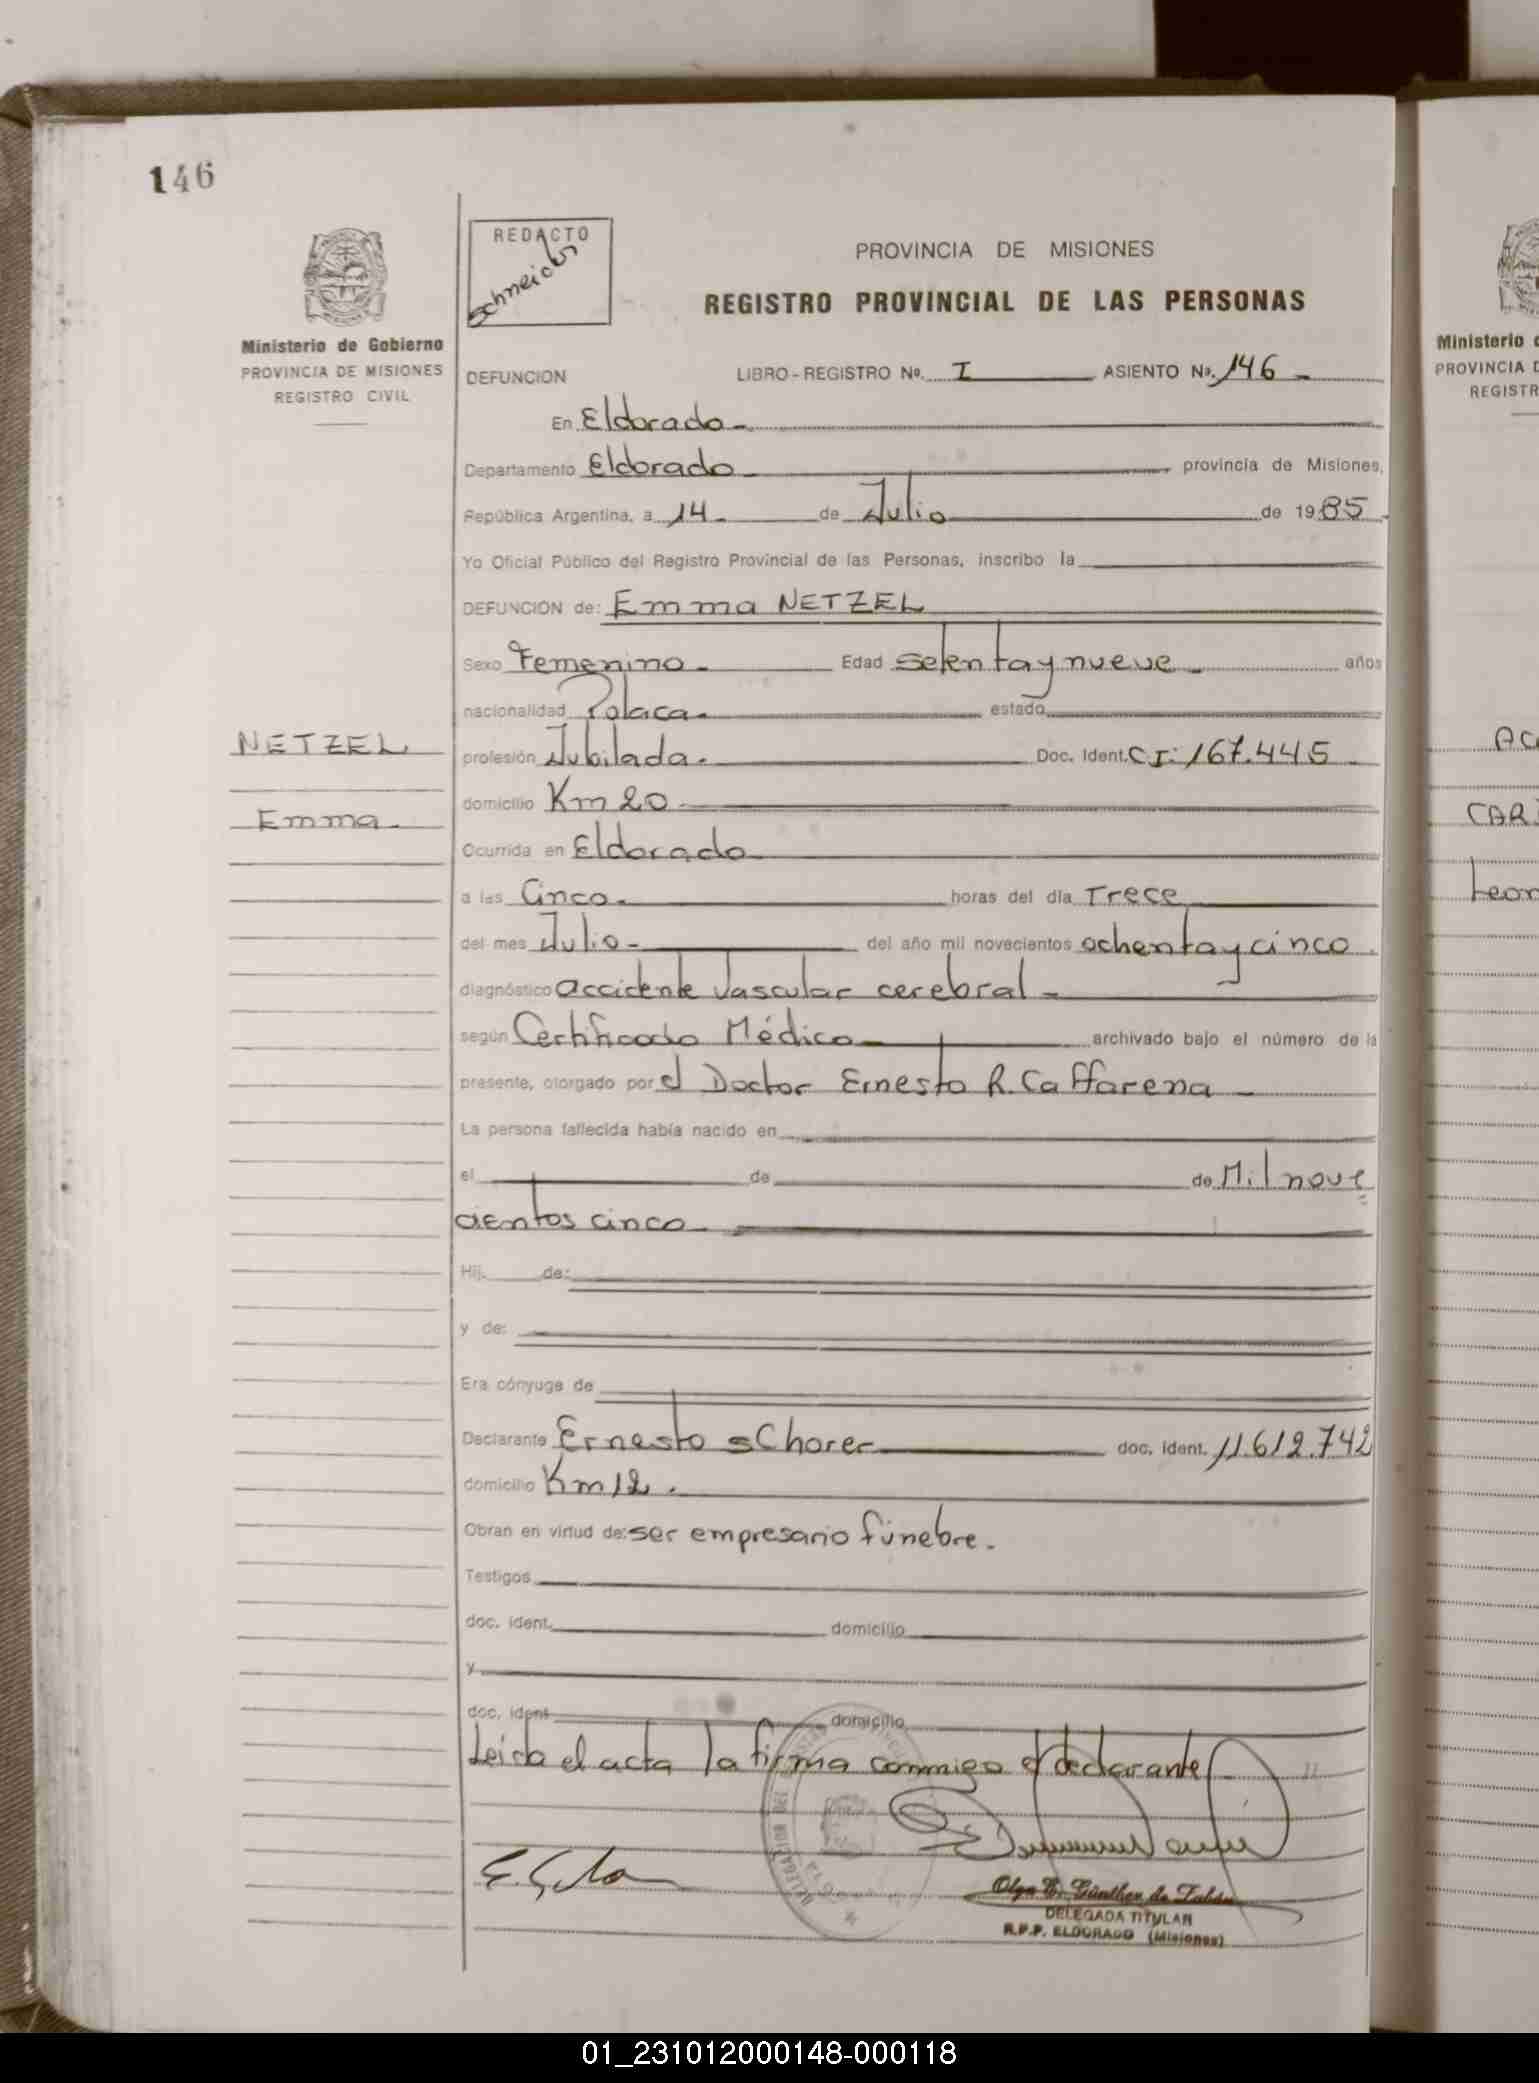 146
REDACTO
Schneider
PROVINCIA DE MISIONES
REGISTRO PROVINCIAL DE LAS PERSONAS
Ministerio de Gobierno
PROVINCIA DE MISIONES
REGISTRO CIVIL
DEFUNCION LIBRO-REGISTRO Nº. I ASIENTO Nº. 146 -
En Eldorado -
Departamento Eldorado provincia de Misiones,
República Argentina, a 14 - de Julio de 1985
Yo Oficial Público del Registro Provincial de las Personas, inscribo la
DEFUNCION de: Emma NETZEL
Sexo Femenino - Edad setenta y nueve - años
nacionalidad Polaca - estado
NETZEL
Emma -
profesión Jubilada. Doc. Ident. C.I: 167.445
domicilio Km 20
Ocurrida en Eldorado
a las Cinco - horas del día Trece
del mes Julio - del año mil novecientos ochenta y cinco.
diagnóstico accidente vascular cerebral -
según Certificado Médico archivado bajo el número de la
presente, otorgado por el Doctor Ernesto R. Caffarena
La persona fallecida había nacido en
el de de Mil nove
cientos cinco
Hij de:
y de:
Era cónyuge de
Declarante Ernesto sChorer doc. ident. 11.612.742
domicilio Km 12.
Obran en virtud de: ser empresario fúnebre.
Testigos
doc. ident. domicilio
y
doc. ident domicilio
Leida el acta la firma conmigo el declarante
DELEGACION
Olga E. Günther de
DELEGADA TITULAR
R.P.P. ELDORADO (Misiones)
Ministerio
PROVINCIA
REGISTR
AC
CAR
Leon
01_231012000148-000118